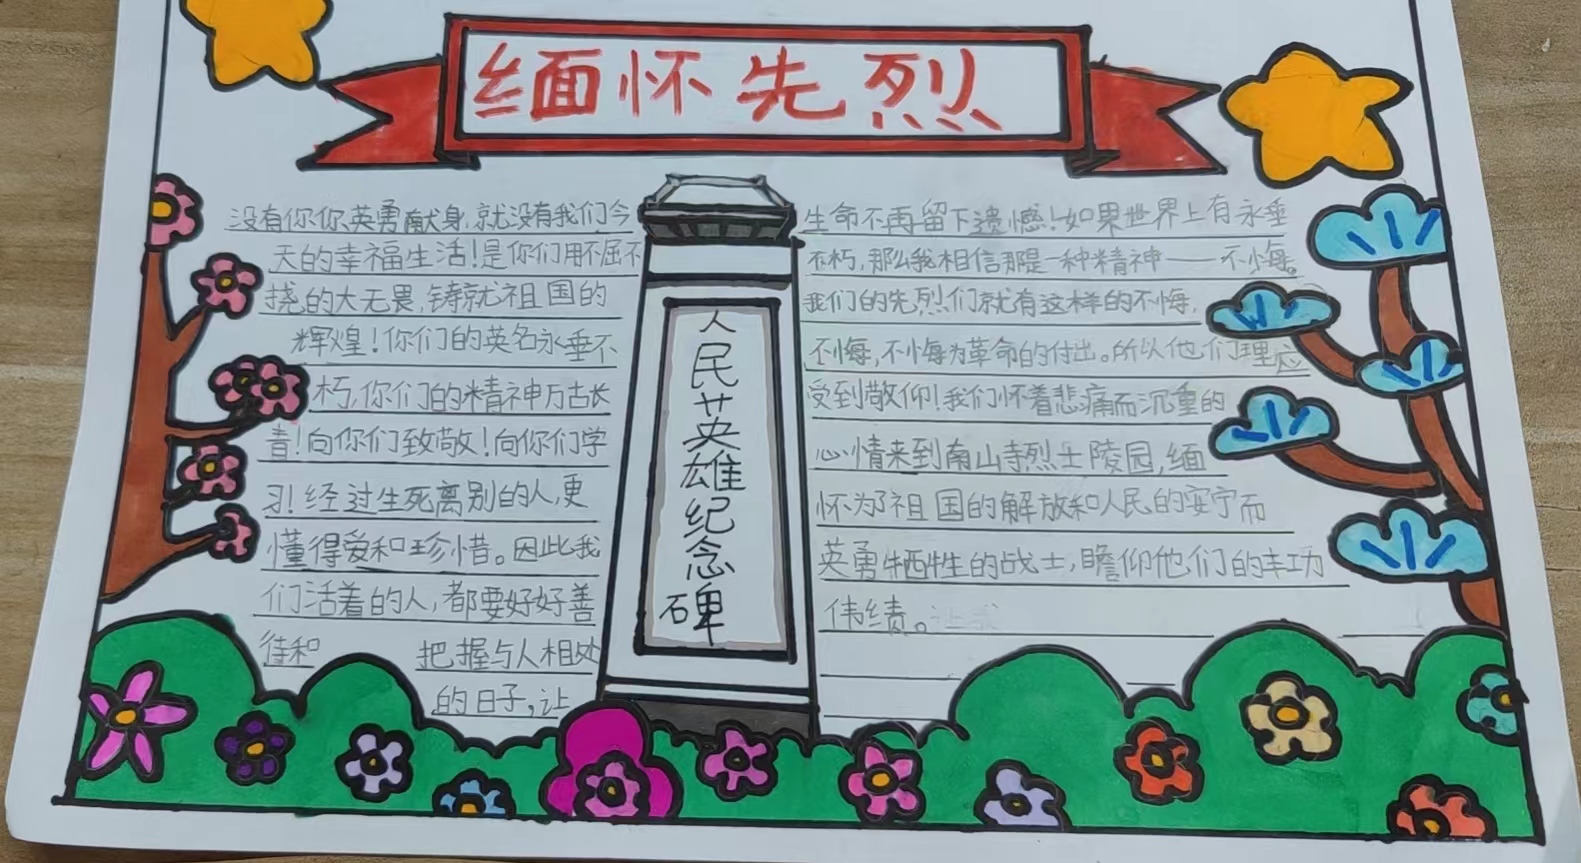 缅怀先烈
没有你你英勇献身,就没有我们今
天的幸福生活!是你们用不屈不
挠的大无畏,铸就祖国的
辉煌!你们的英名永垂不
朽,你们的精神万古长
青!向你们致敬!向你们学
习!经过生死离别的人,更
懂得爱和珍惜。因此我
们活着的人,都要好好善
待和 把握与人相处
的日子,让
人民英雄纪念碑
生命不再留下遗憾!如果世界上有永垂
不朽,那么我相信那是一种精神——不悔。
我们的先烈们就有这样的不悔,
不悔,不悔为革命的付出。所以他们理应
受到敬仰!我们怀着悲痛而沉重的
心情来到南山寺烈士陵园,缅
怀为了祖国的解放和人民的安宁而
英勇牺牲的战士,瞻仰他们的丰功
伟绩。